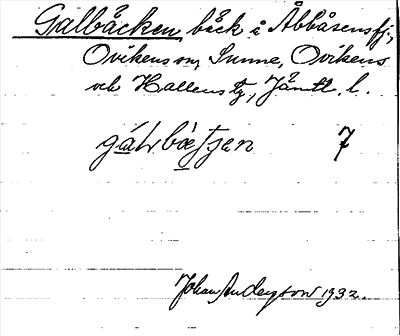 Galbäcken bäck i Åbbåsensfj.,
Ovikens sn, Sunne, Ovikens
och Hallens tg, Jämtl. l.
7
Johan Anderson 1932.